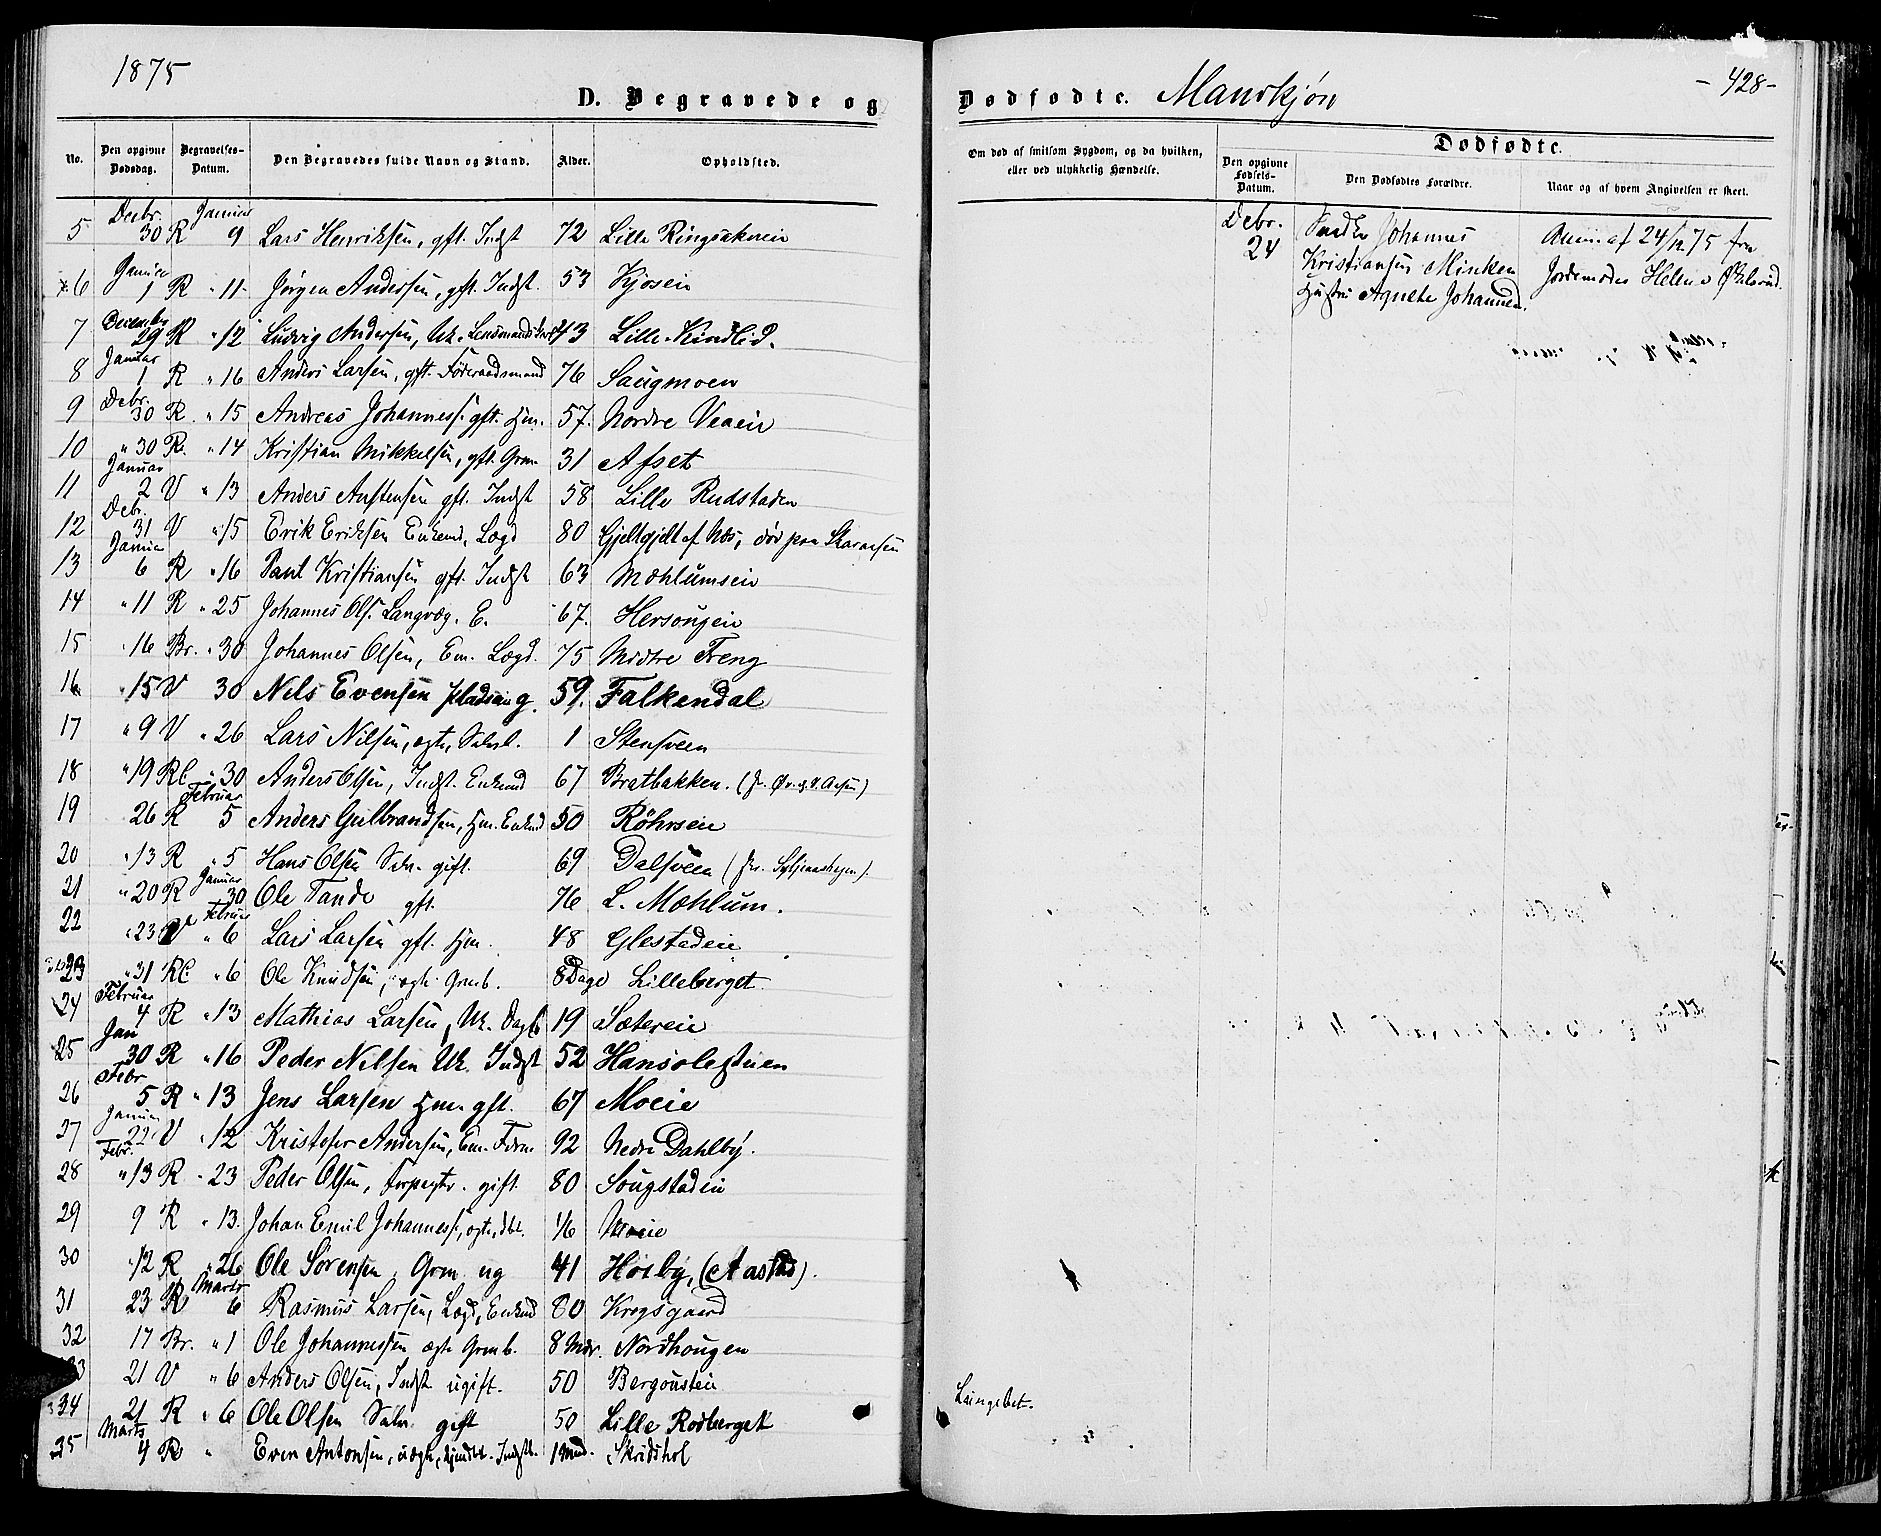 1875
D. Begravede og
No. | Den opgivne Dødsdag. | Begravelses-Datum. | Den Begravedes fulde Navn og Stand. | Alder. | Opholdsted.
5 Decbr. 30 R Januar 9 Lars Henriksen, gft. Indst 72 Lille Ringsakereie
6 Januar 1 R " 11 Jørgen Andersen, gft. Indst. 53 Kjoseie
7 December 29 R " 12 Ludvig Andersen, Uk. 43 Lille Kindlid.
8 Januar 1 R " 16 Anders Larsen, gft. Føderaadsmand 76 Saugmoen
9 Debr. 30 R " 15 Andreas Johanness. gft. Hm. 57. Nordre Veeeie
10 " 30 R. " 14 Kristian Mikkelsen, gft. Grm. 31 Afset
11 Januar 2 V " 13 Anders Austensen gft. Indst 58 Lille Rudstaden
12 Debr. 31 V " 15 Erik Eriksen Enkemd, Lægd 80
13 Januar 6 R " 16 Paul Kristiansen gft. Indst 63 Mæhlumseie
14 " 11 R " 25 Johannes Ols. Langvæg. E. 67.
15 " 16 Br. " 30 Johannes Olsen, Em. Lægd. 75 Midtre Freng
16 " 15 V 30 Nels Evensen g. 59. Falkendal
17 " 9 V " 26 Lars Nilsen, ægte, Selvl. 1 Stensveen
18 " 19 RC " 30 Anders Olsen, Indst. Enkemd 67 Bratbakken.
19 26 R Februar 5 Anders Gulbrandsen, Hm. Enkmd 50 Röhrseie
20 " 13 R " 5 Hans Olsen Selv. gift. 69 Dalsveen
21 " 20 R Januar 30 Ole Tande gft. 76 L. Mæhlum.
22 " 23 V Februar " 6 Lars Larsen gft. Hm. 48 Glestadeie
23 " 31 RC " 6 Ole Knudsen, ægte Grmb. 8 Dage Lilleberget
24 Februar 4 R " 13 Mathias Larsen, Uk. 19 Sætereie
25 Jan 30 R " 16 Peder Nilsen Uk. Indst 52 Hansolestuen
26 Febr 5 R " 13 Jens Larsen Hm. gft. 67 Moeie
27 Januar 22 V " 12 Kristofer Andersen, Em. 92 Nedre Dahlby.
28 Febr. " 13 R " 23 Peder Olsen, Forpagter. gift. 80 Sougstadeie
29 9 R " 13. Johan Emil Johanness., ægte, 1/6 Moeie
30 " 12 R " 26 Ole Sørensen, Grm. ug 41 Høiby, (Aastad).
31 23 R Marts 6 Rasmus Larsen, Lægd, Enkmd 80 Krogsgaard
32 17 Br. " 1 Ole Johannessen ægte Grmb. 8 Mdr. Nordhougen
33 21 V " 6 Anders Olsen, Indst ugift. 50 Bergousteie
34 21 R " 6 Ole Olsen Selv. gift 50 Lille Rodberget
35 Marts 4 R " Even Antonsen, uægte, 1 Mnd. Skridshol
Dødfødte. Mandkjøn
- 428 -
Om død af smitsom Sygdom, og da hvilken, eller ved ulykkelig Hændelse.
Dødfødte.
Den opgivne Fødsels-Datum. | Den Dødfødtes Forældre. | Naar og af hvem Angivelsen er skeet.
Debr. 24
Johannes
Kristiansen Minken
Hustru Agnethe Johannesd.
24/12 75 fra
Jordemoder Helene
Lungebet.